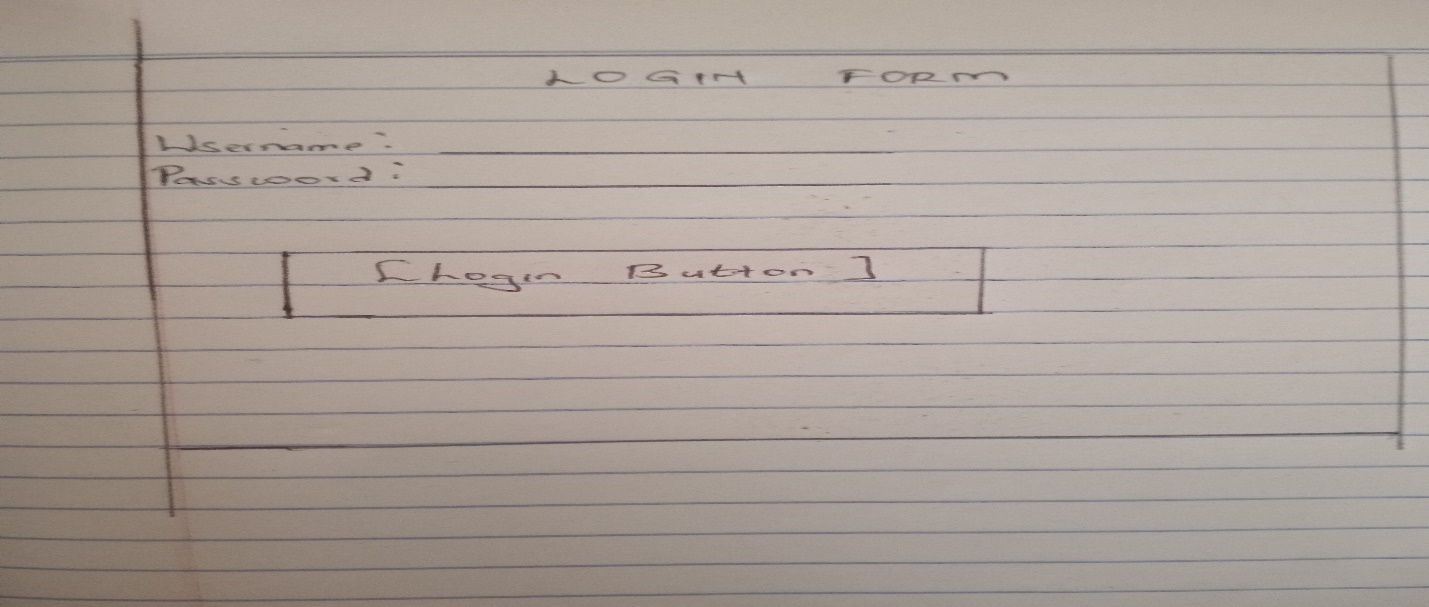 LOGIN FORM
Username:
Password:
[Login Button]